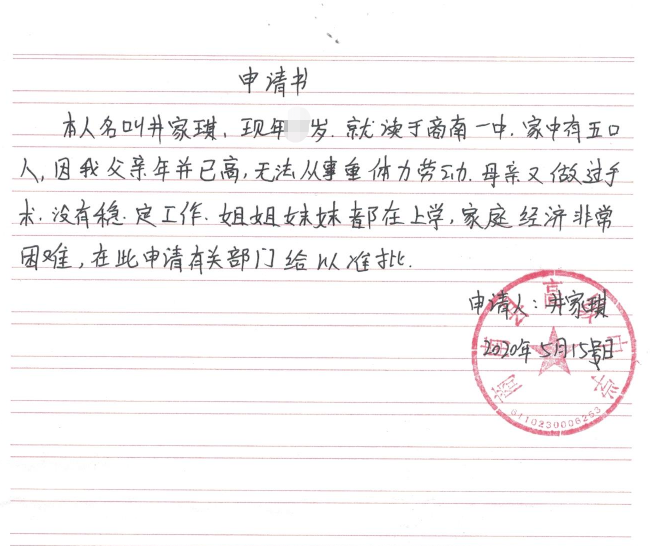 申请书
本人名叫井家琪、现年 岁.就读于商南一中.家中有五口
人,因我父亲年并已高,无法从事重体力劳动.母亲又做过手
术.没有稳定工作.姐姐妹妹都在上学,家庭经济非常
困难,在此申请有关部门给以准批.
申请人:井家琪
2020年5月15号日
6110230006263